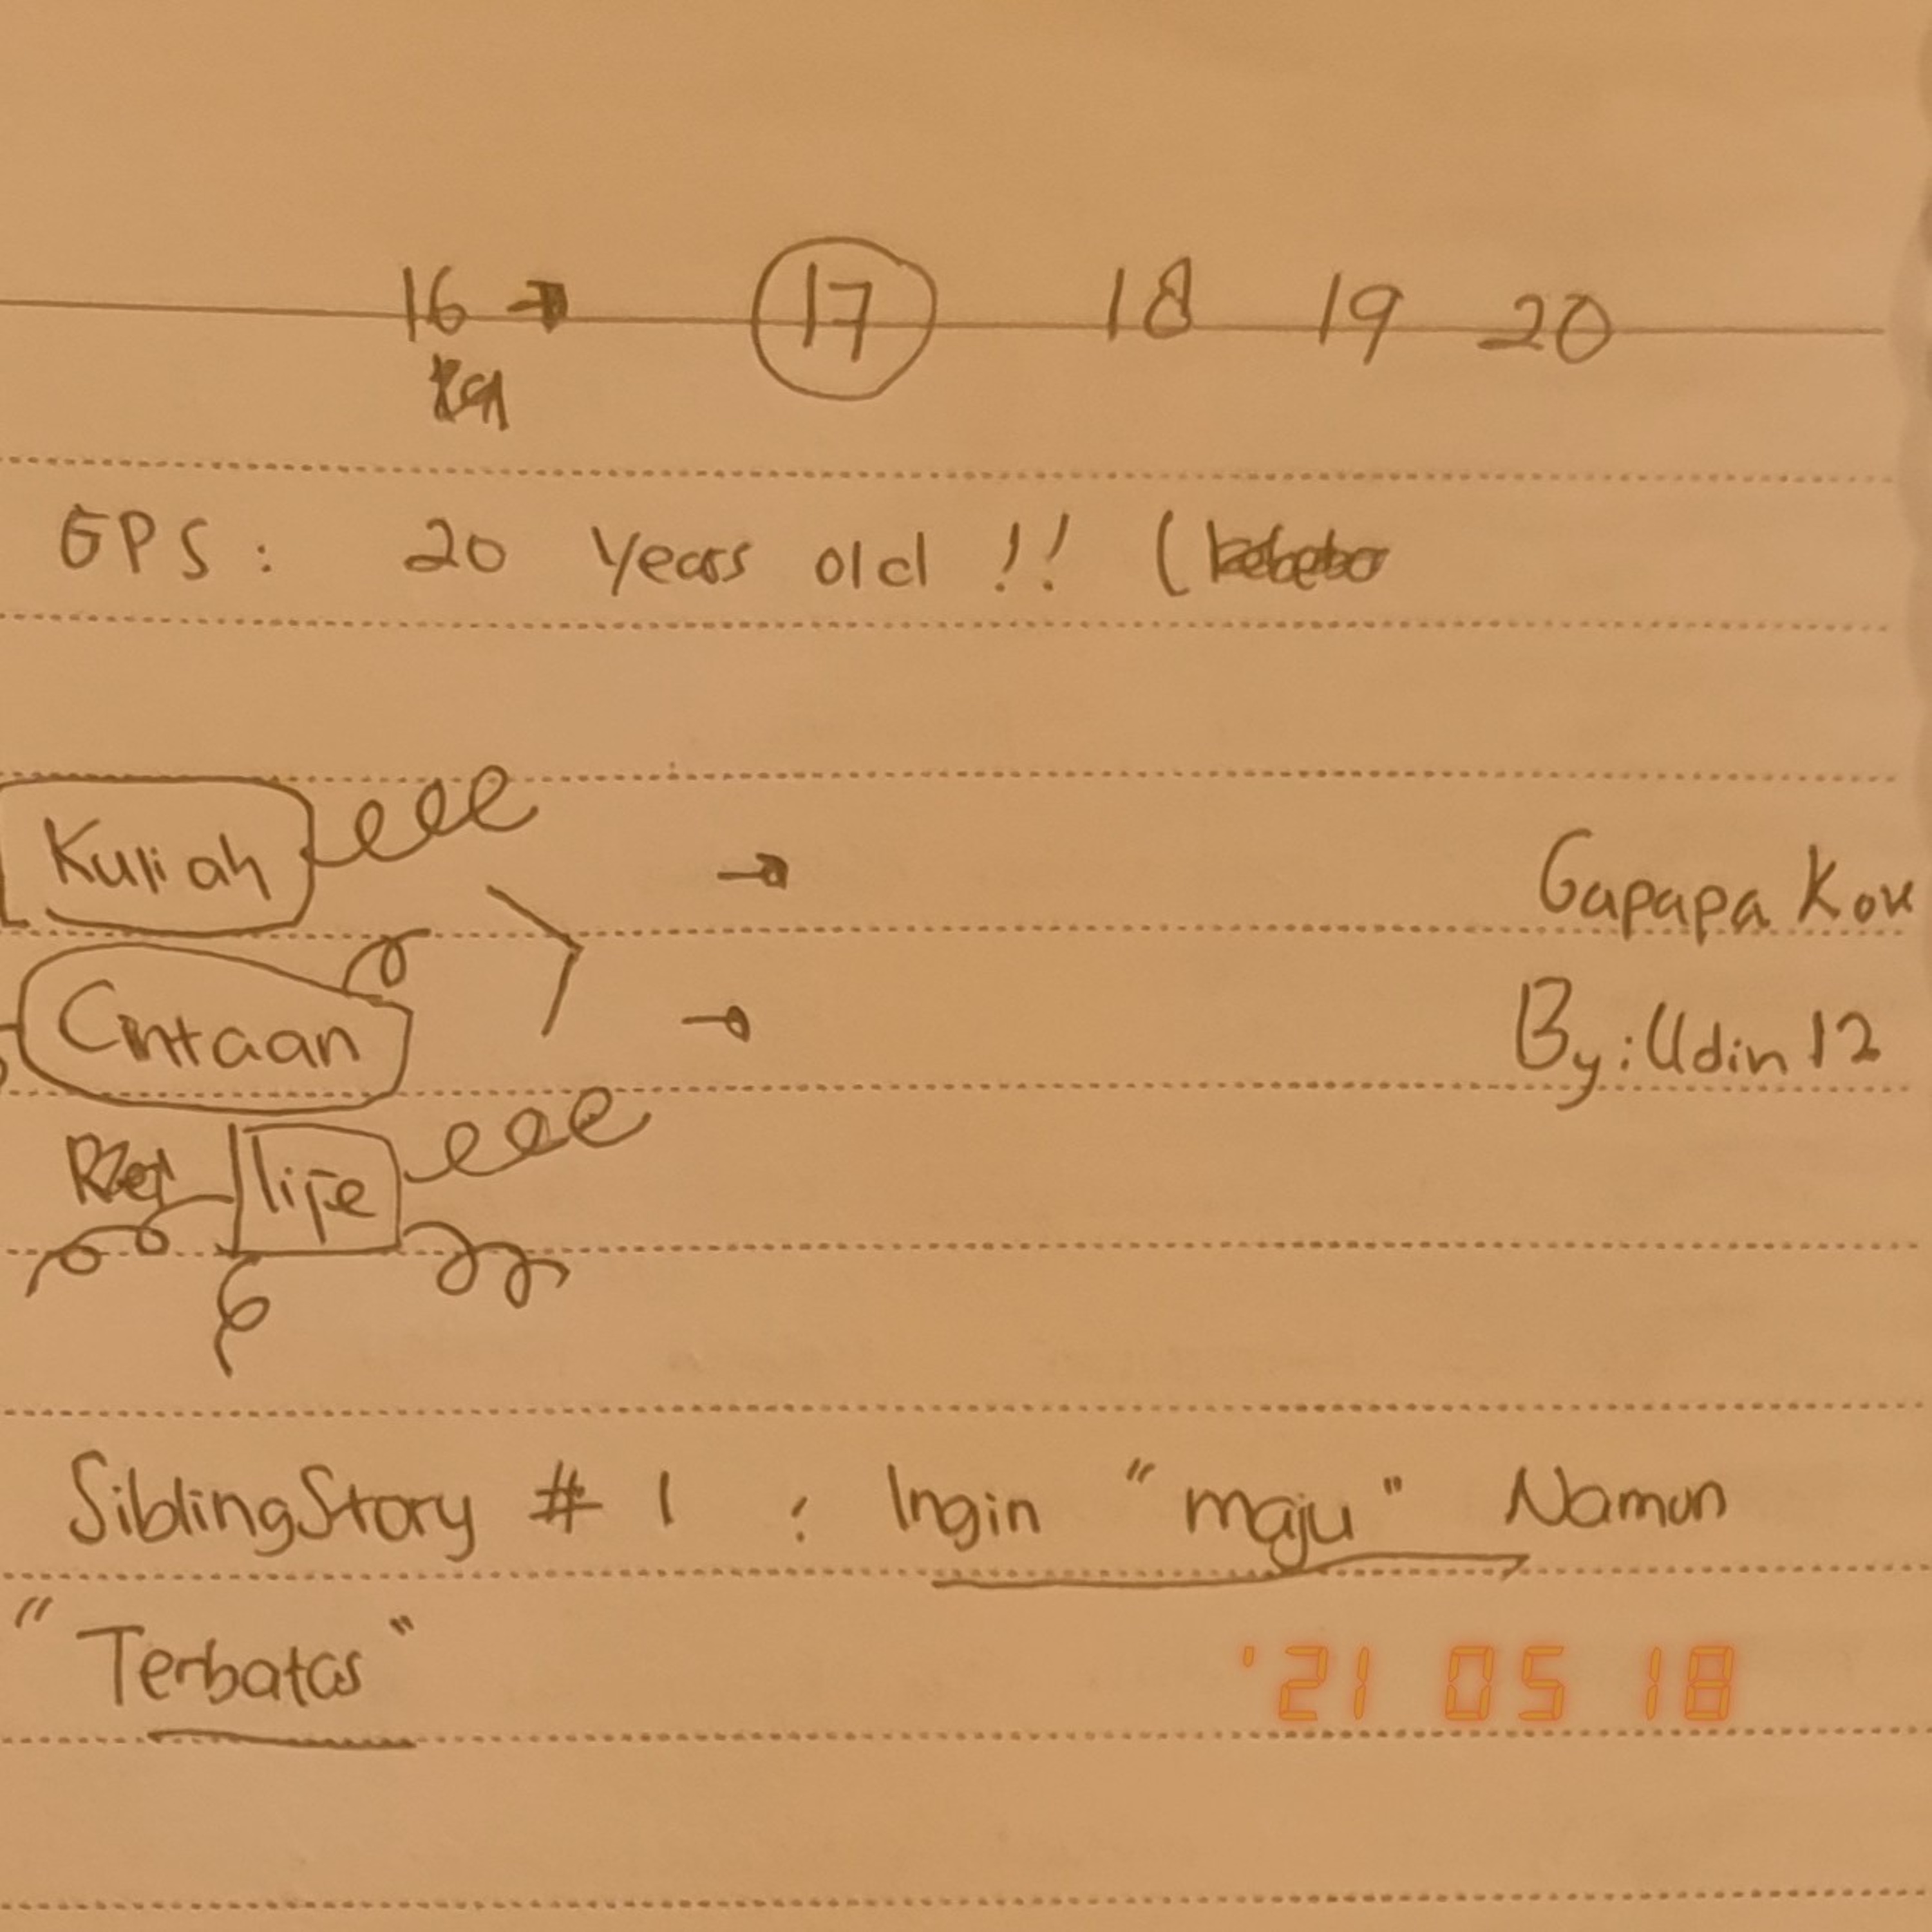 16 → 17 18 19 20
GPS : 20 Years old !! (
Kuliah
Gapapa Kok
Cintaan
By : Udin 12
life
SiblingStory # 1 : Ingin "maju" Namun
"Terbatas"
'21 05 18